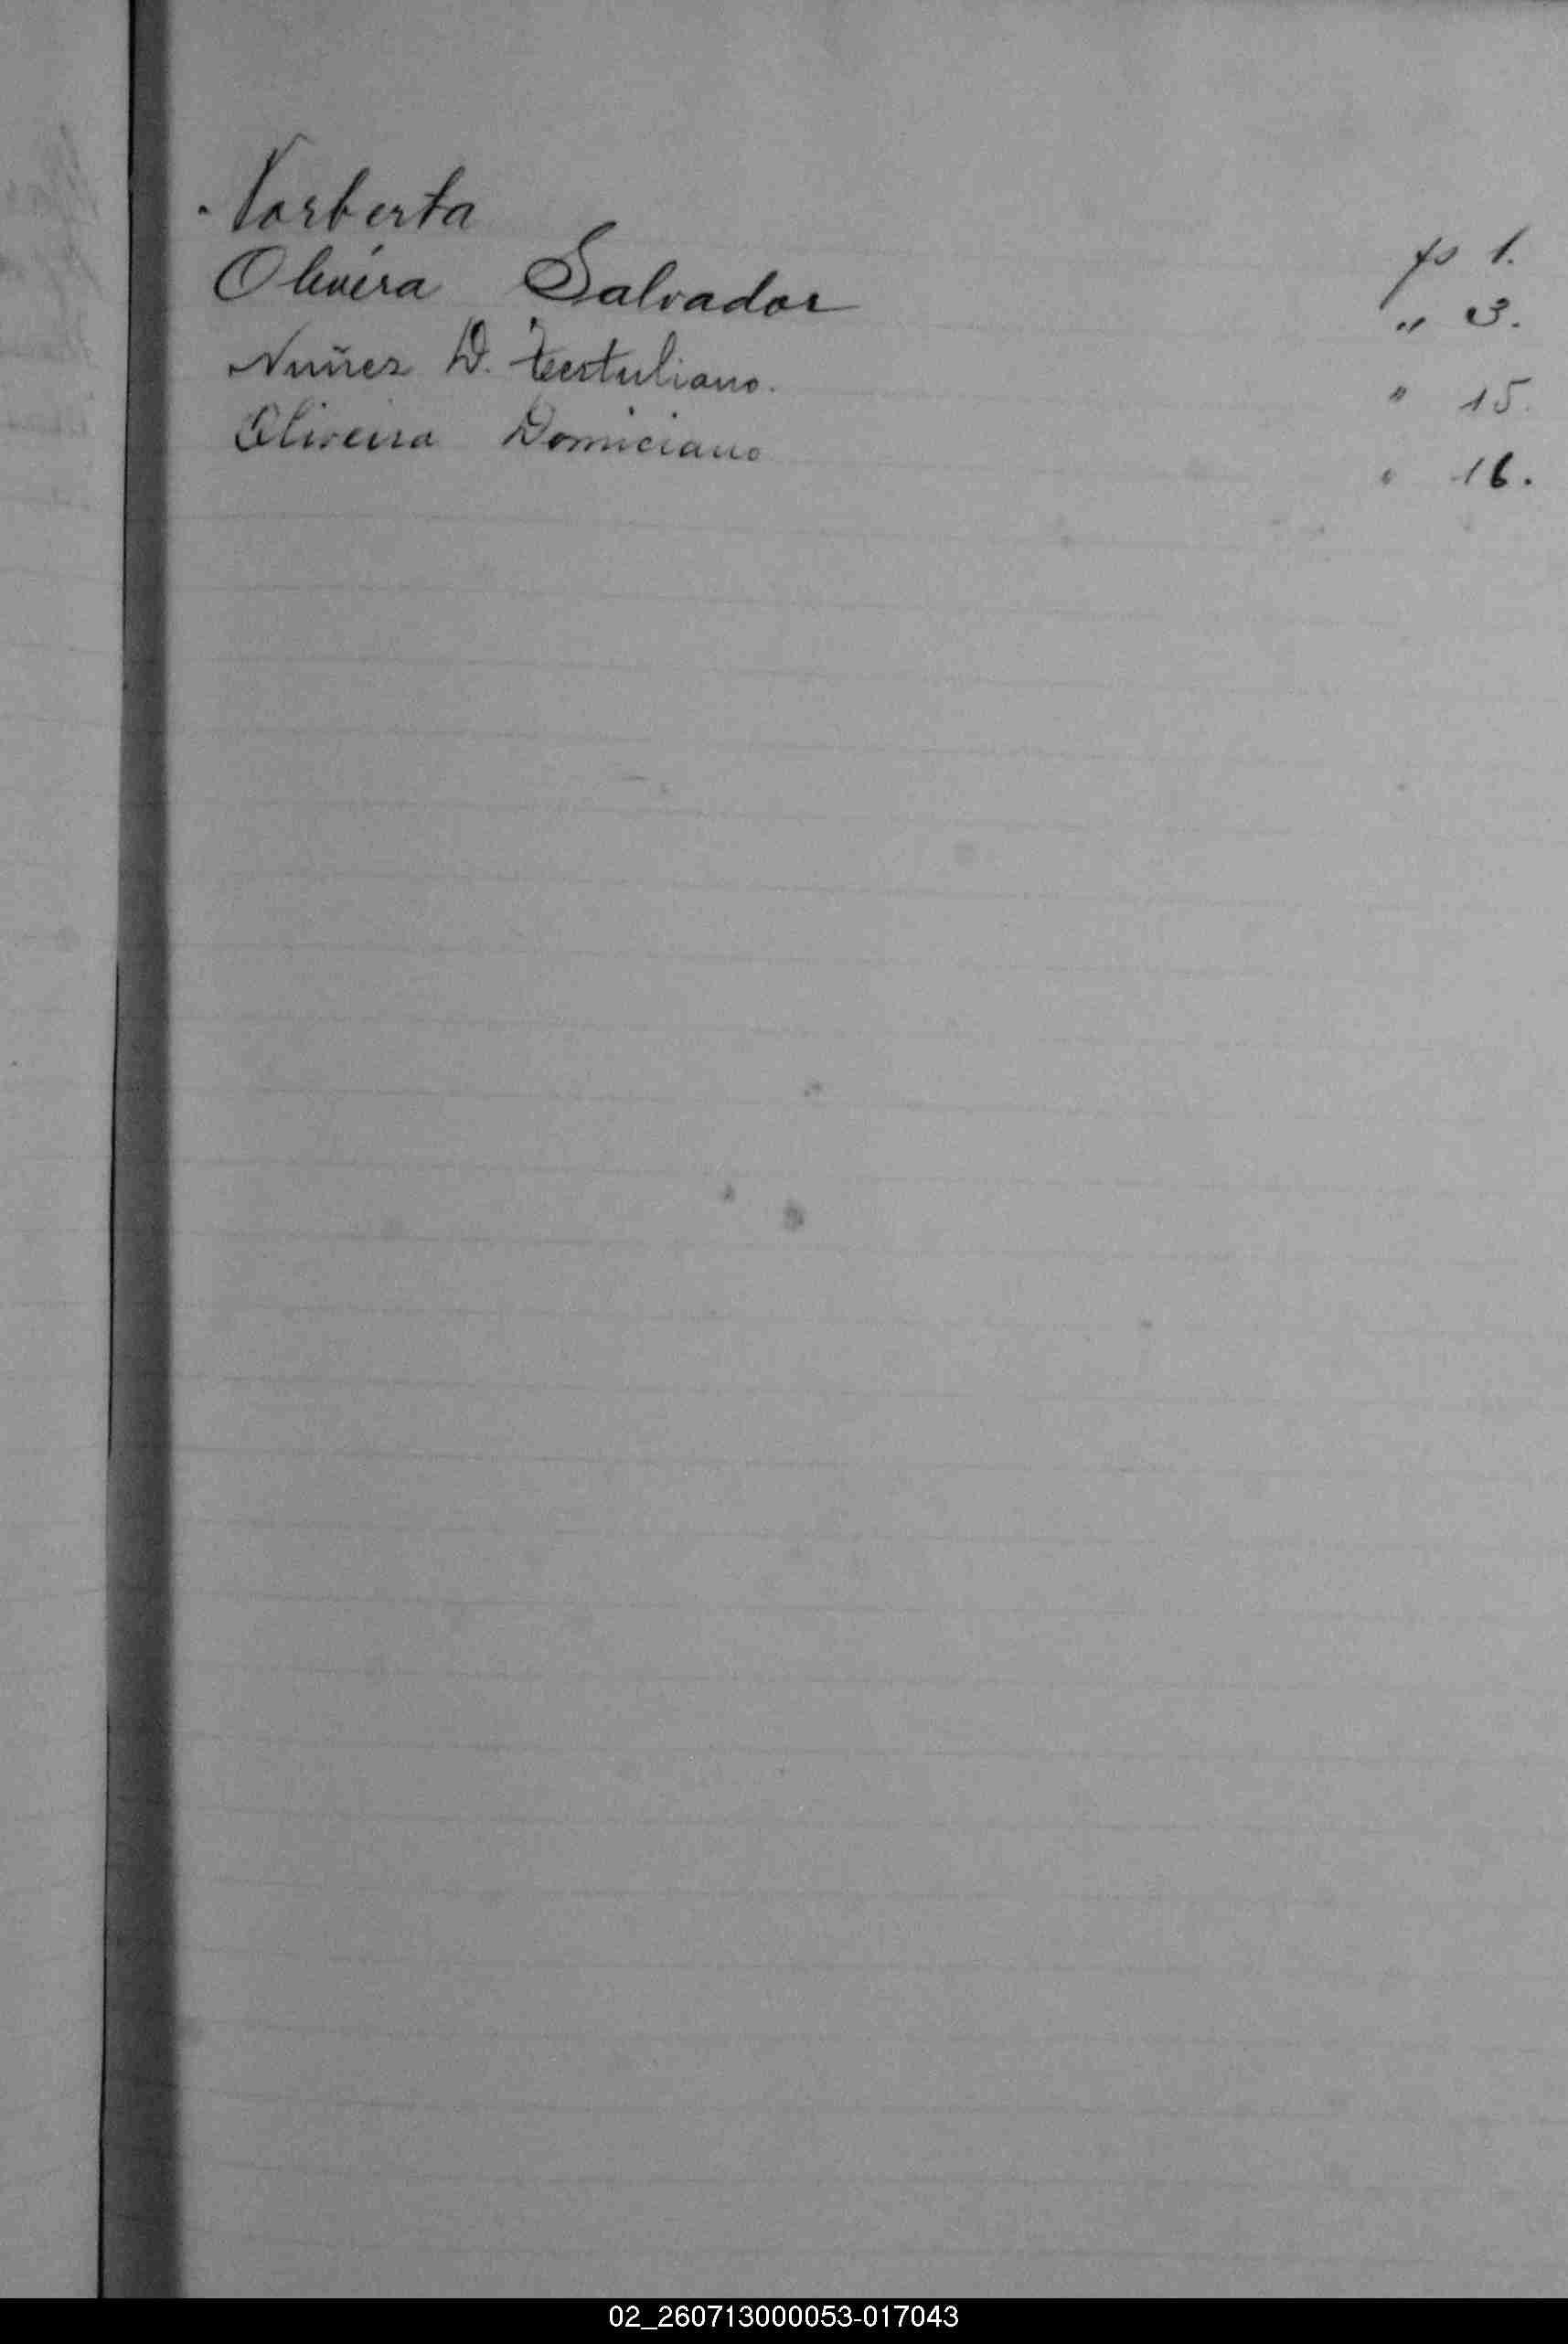 Norberta fs 1.
Oliveira Salvador " 3.
Nuñez D. Tertuliano. " 15.
Oliveira Domiciano " 16.
02_260713000053-017043